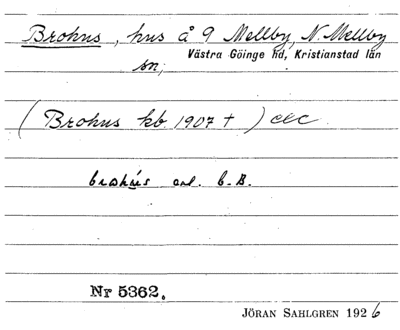 Brohus, hus å 9 Mellby, N. Mellby
sn, Västra Göinge hd, Kristianstad län
(Brohus kb 1907 †) etc
Nr 5362.
JÖRAN SAHLGREN 1926